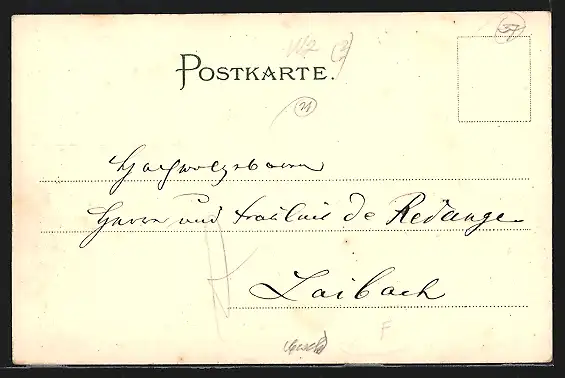 POSTKARTE.
Hochwolgeboren
Herrn und Fräulein de Redange
Laibach
F